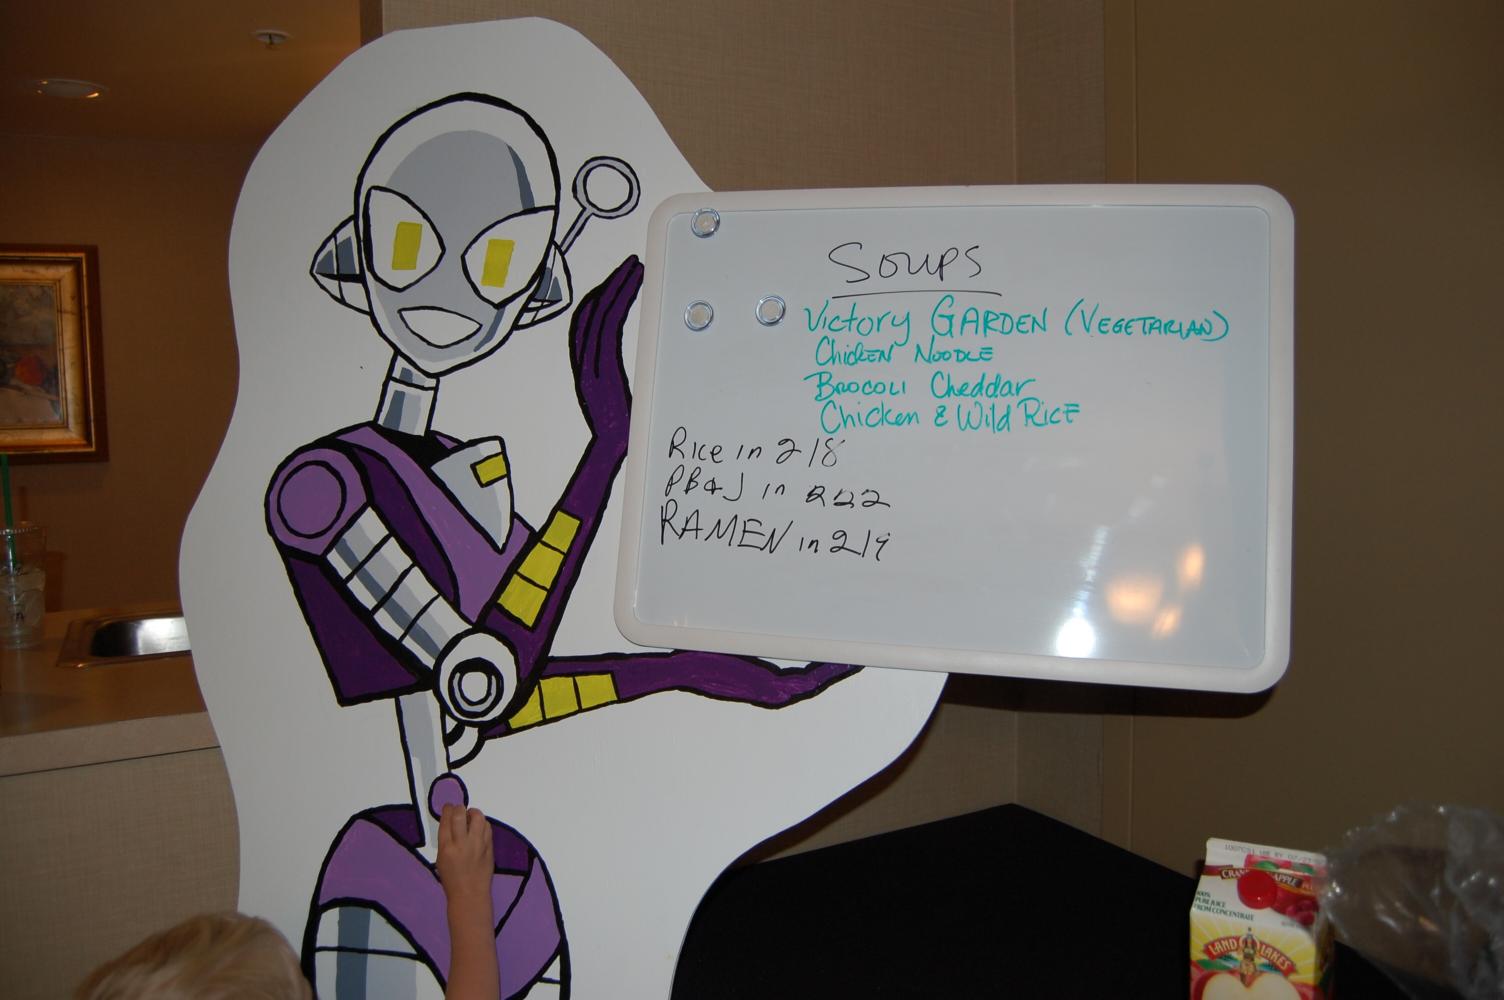 SOUPS
Victory GARDEN (VEGETARIAN)
Chicken NOODLE
BROCOLI Cheddar
Chicken & Wild RICE
Rice in 218
PB&J in 222
RAMEN in 219
CRAN APPLE
100%
PURE JUICE
FROM CONCENTRATE
LAND O LAKES